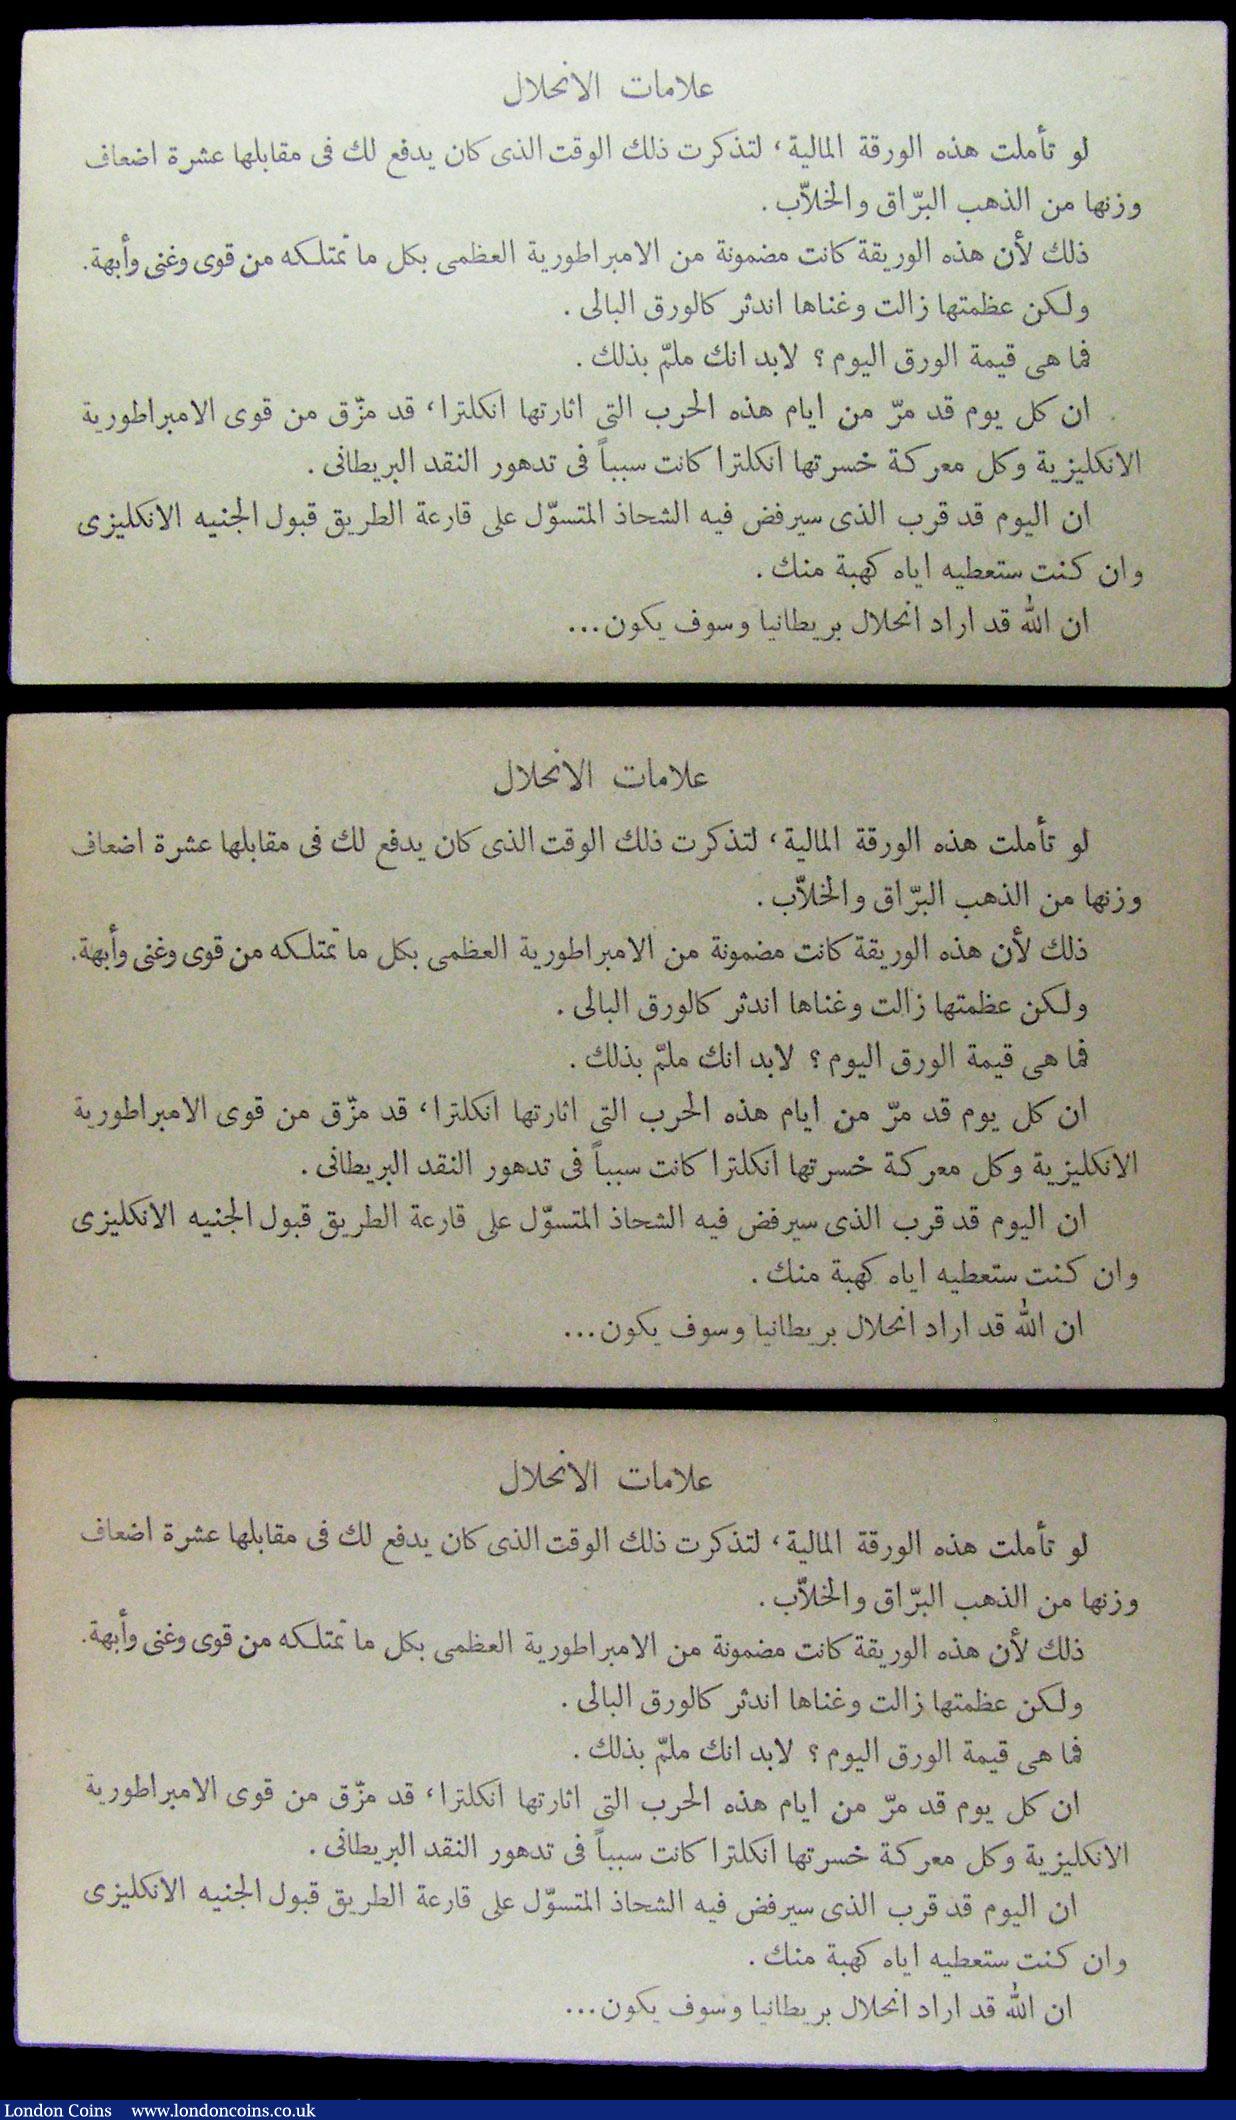 علامات الانحلال
لو تأملت هذه الورقة المالية، لتذكرت ذلك الوقت الذى كان يدفع لك فى مقابلها عشرة اضعاف
وزنها من الذهب البرّاق والخلاّب.
ذلك لأن هذه الوريقة كانت مضمونة من الامبراطورية العظمى بكل ما تمتلكه من قوى وغنى وأبهة.
ولكن عظمتها زالت وغناها اندثر كالورق البالى.
فما هى قيمة الورق اليوم؟ لابد انك ملمّ بذلك.
ان كل يوم قد مرّ من ايام هذه الحرب التى اثارتها انكلترا، قد مزّق من قوى الامبراطورية
الانكليزية وكل معركة خسرتها انكلترا كانت سبباً فى تدهور النقد البريطانى.
ان اليوم قد قرب الذى سيرفض فيه الشحاذ المتسوّل على قارعة الطريق قبول الجنيه الانكليزى
وان كنت ستعطيه اياه كهبة منك.
ان الله قد اراد انحلال بريطانيا وسوف يكون...
علامات الانحلال
لو تأملت هذه الورقة المالية، لتذكرت ذلك الوقت الذى كان يدفع لك فى مقابلها عشرة اضعاف
وزنها من الذهب البرّاق والخلاّب.
ذلك لأن هذه الوريقة كانت مضمونة من الامبراطورية العظمى بكل ما تمتلكه من قوى وغنى وأبهة.
ولكن عظمتها زالت وغناها اندثر كالورق البالى.
فما هى قيمة الورق اليوم؟ لابد انك ملمّ بذلك.
ان كل يوم قد مرّ من ايام هذه الحرب التى اثارتها انكلترا، قد مزّق من قوى الامبراطورية
الانكليزية وكل معركة خسرتها انكلترا كانت سبباً فى تدهور النقد البريطانى.
ان اليوم قد قرب الذى سيرفض فيه الشحاذ المتسوّل على قارعة الطريق قبول الجنيه الانكليزى
وان كنت ستعطيه اياه كهبة منك.
ان الله قد اراد انحلال بريطانيا وسوف يكون...
علامات الانحلال
لو تأملت هذه الورقة المالية، لتذكرت ذلك الوقت الذى كان يدفع لك فى مقابلها عشرة اضعاف
وزنها من الذهب البرّاق والخلاّب.
ذلك لأن هذه الوريقة كانت مضمونة من الامبراطورية العظمى بكل ما تمتلكه من قوى وغنى وأبهة.
ولكن عظمتها زالت وغناها اندثر كالورق البالى.
فما هى قيمة الورق اليوم؟ لابد انك ملمّ بذلك.
ان كل يوم قد مرّ من ايام هذه الحرب التى اثارتها انكلترا، قد مزّق من قوى الامبراطورية
الانكليزية وكل معركة خسرتها انكلترا كانت سبباً فى تدهور النقد البريطانى.
ان اليوم قد قرب الذى سيرفض فيه الشحاذ المتسوّل على قارعة الطريق قبول الجنيه الانكليزى
وان كنت ستعطيه اياه كهبة منك.
ان الله قد اراد انحلال بريطانيا وسوف يكون...
London Coins www.londoncoins.co.uk